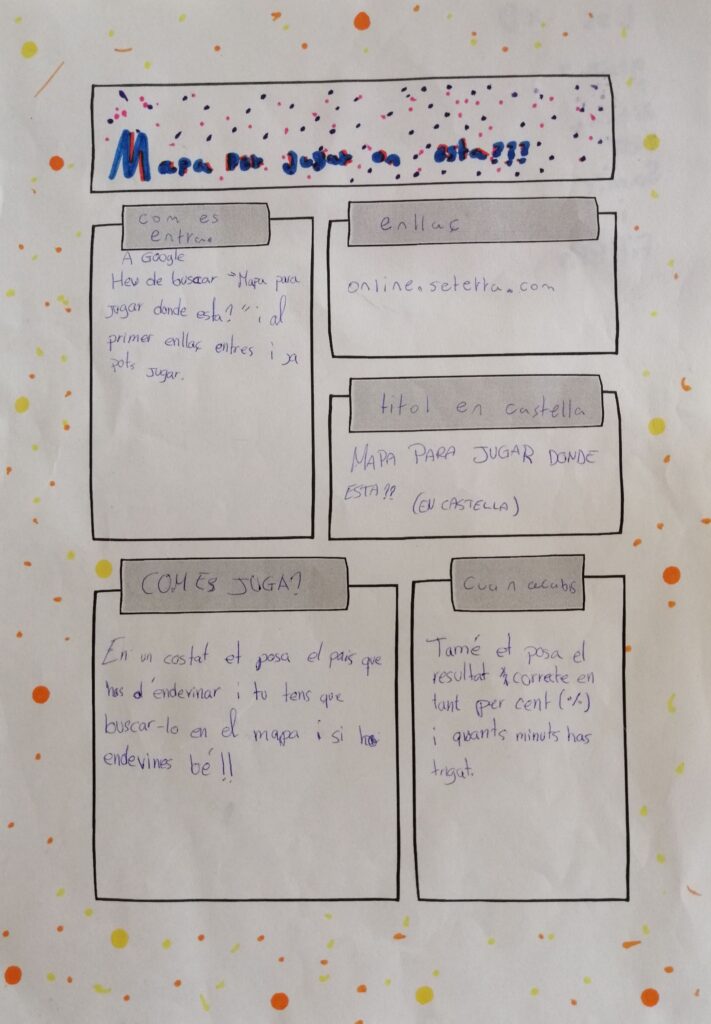 Mapa per jugar on esta???
com es
entra.
A Google
Heu de buscar "Mapa para
jugar donde esta?" i al
primer enllaç entres i ja
pots jugar.
enllaç
online.seterra.com
titol en castella
MAPA PARA JUGAR DONDE
ESTA??
(EN CASTELLA)
COM ES JUGA?
En un costat et posa el país que
has d'endevinar i tu tens que
buscar-lo en el mapa i si ho
endevines bé!!
Cuan acabis
Tamé et posa el
resultat correcte en
tant per cent (%)
i quants minuts has
trigat.